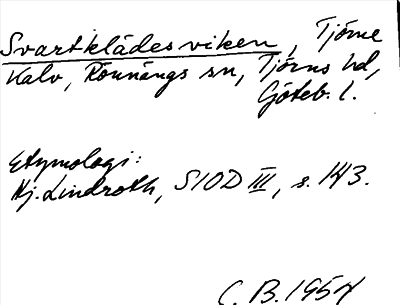 Svartklädesviken, Tjörne
Kalv, Rönnängs sn, Tjörns hd,
Göteb. l.
Etymologi:
Hj. Lindroth, SIOD III, s. 143.
C. B. 1954